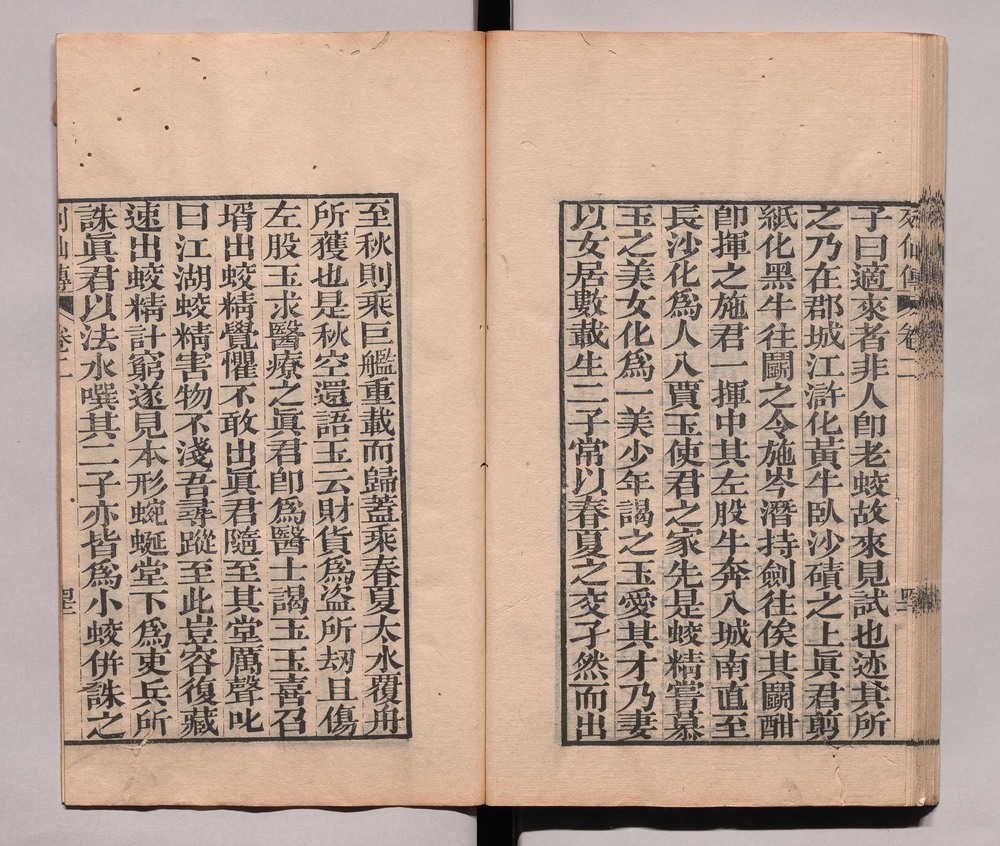 列仙傳 卷二
子曰適來者非人卽老蛟故來見試也迹其所
之乃在郡城江滸化黃牛臥沙磧之上眞君剪
紙化黑牛往鬭之令施岑潛持劍往俟其鬭酣
卽揮之施君一揮中其左股牛奔入城南直至
長沙化爲人入賈玉使君之家先是蛟精嘗慕
玉之美女化爲一美少年謁之玉愛其才乃妻
以女居數載生二子常以春夏之交孑然而出
至秋則乘巨艦重載而歸蓋乘春夏大水覆舟
所獲也是秋空還語玉云財貨爲盜所刼且傷
左股玉求醫療之眞君卽爲醫士謁玉玉喜召
壻出蛟精覺懼不敢出眞君隨至其堂厲聲叱
曰江湖蛟精害物不淺吾尋蹤至此豈容復藏
速出蛟精計窮遂見本形蜿蜒堂下爲吏兵所
誅眞君以法水噀其二子亦皆爲小蛟併誅之
列仙傳 卷二